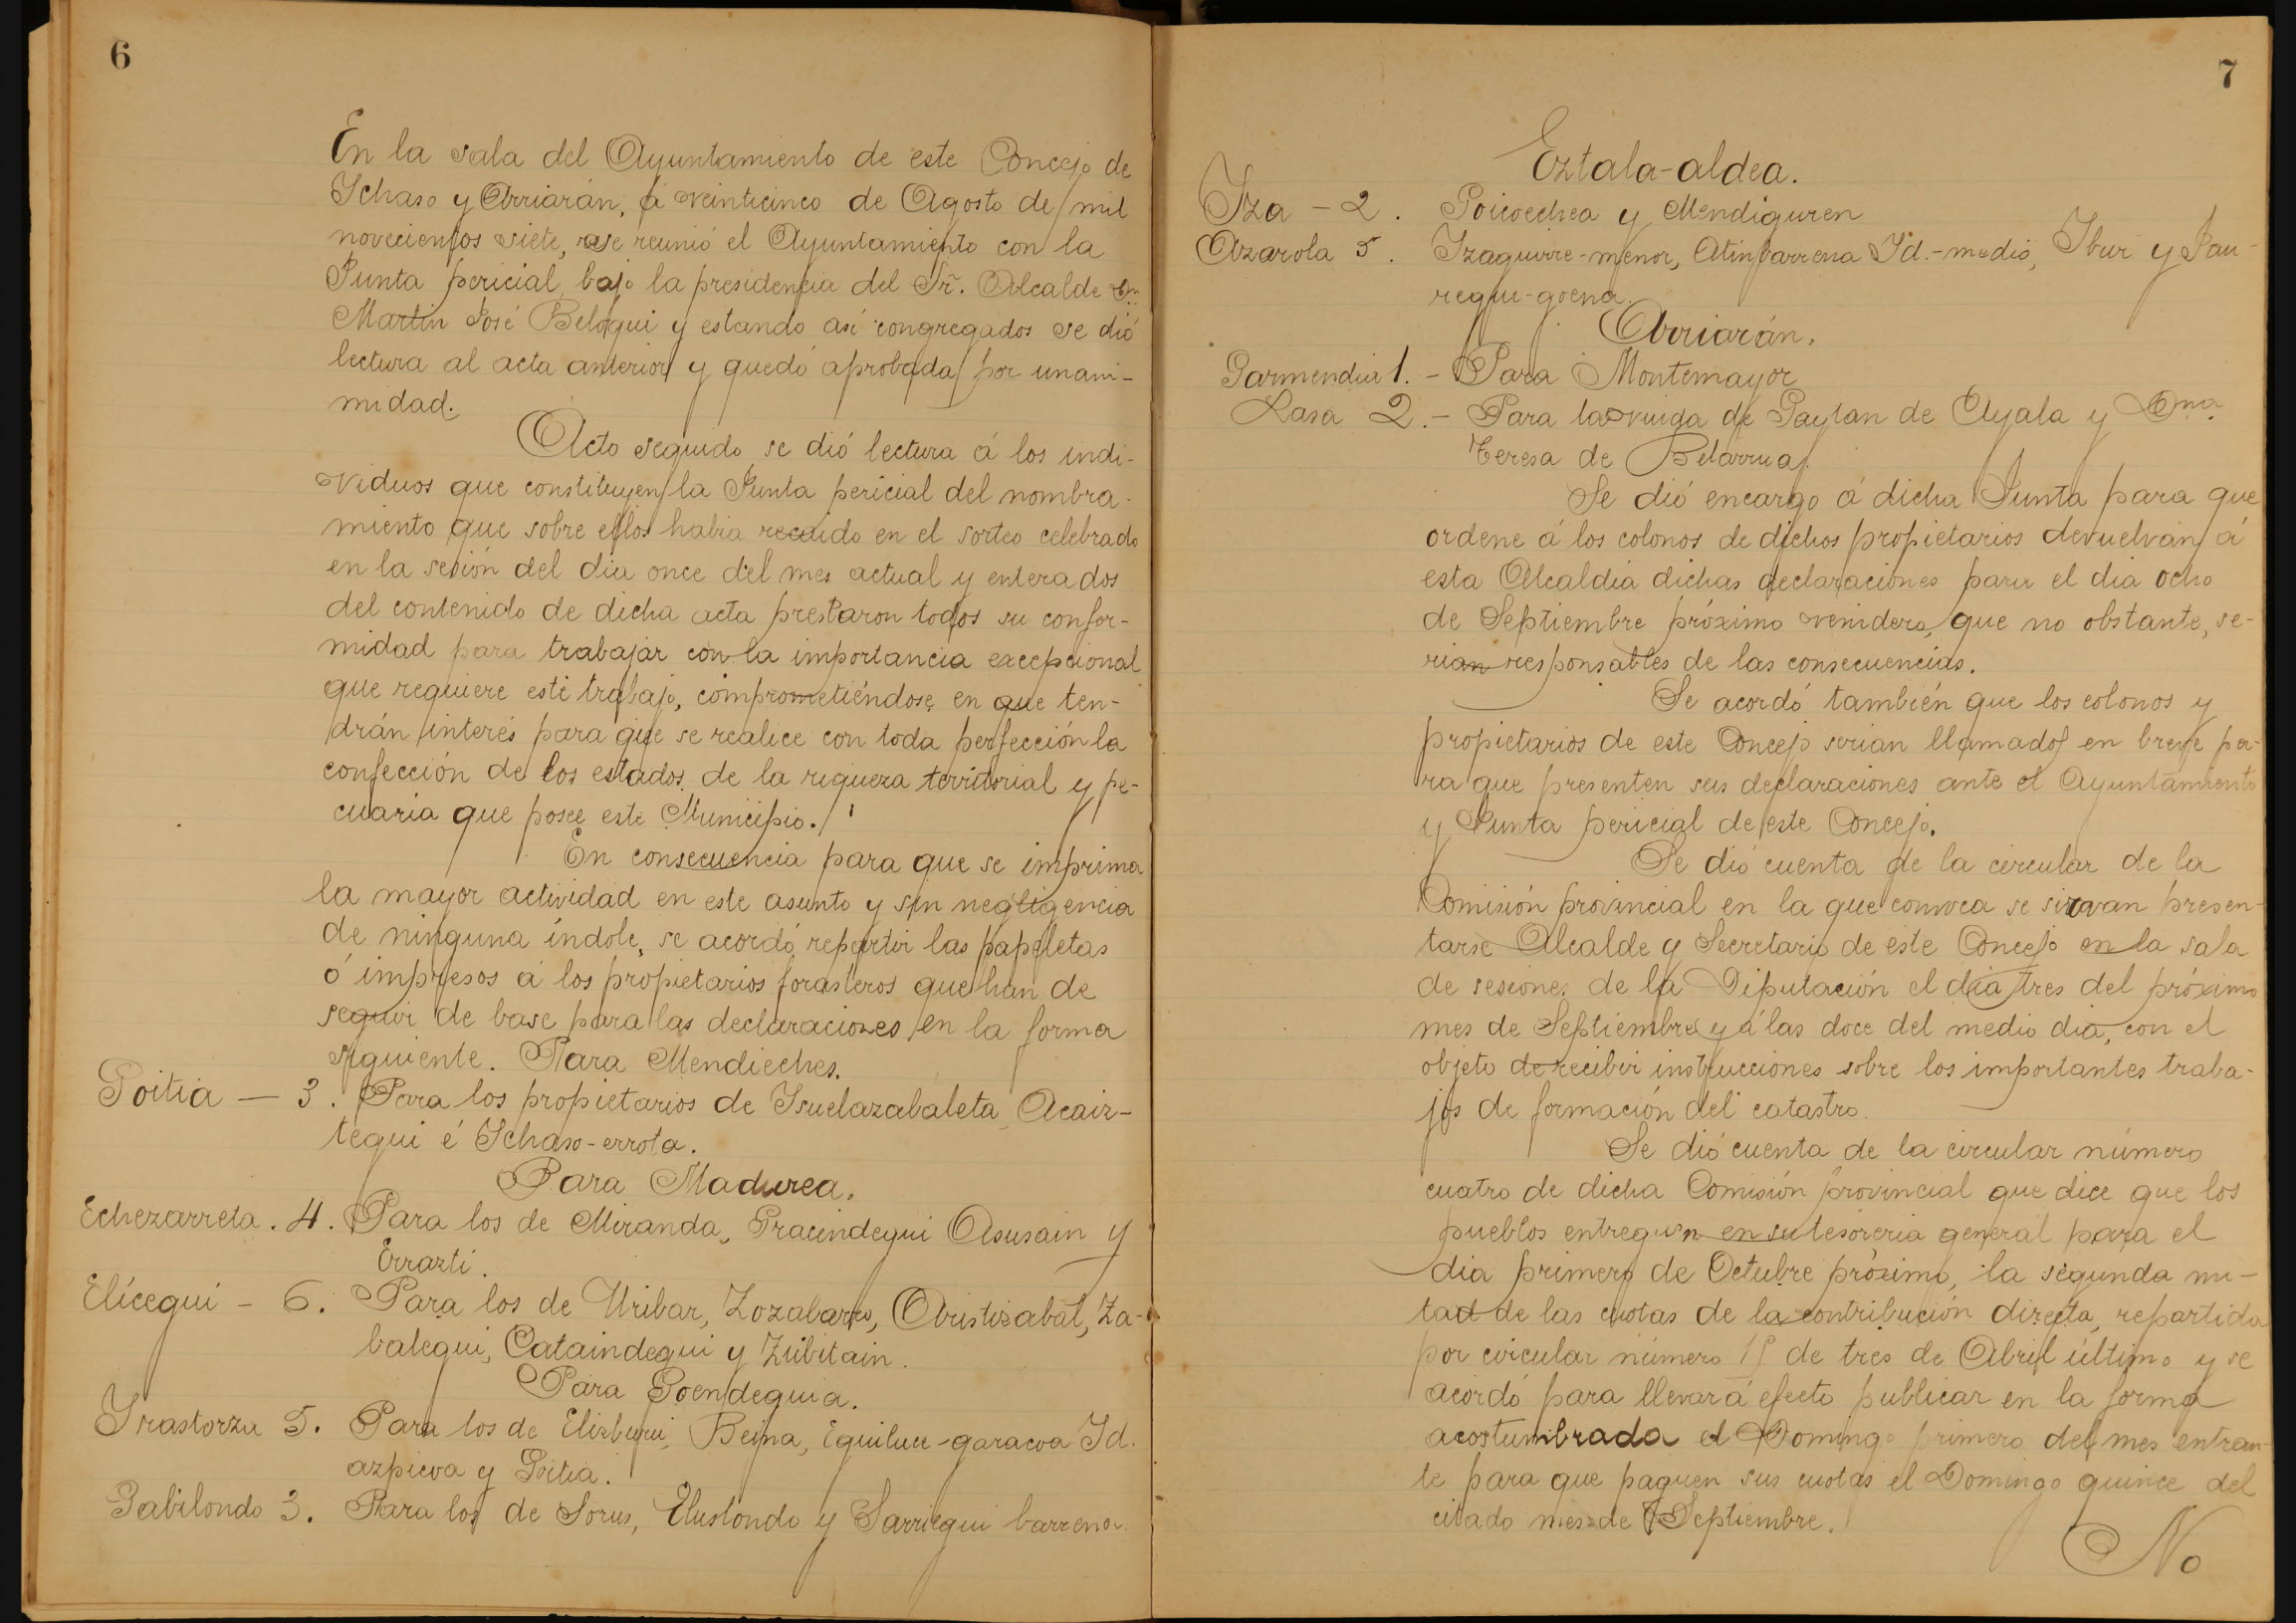 6
En la sala del Ayuntamiento de este Concejo de
Ichaso y Arriarán, á veinticinco de Agosto de mil
novecientos siete, se reunió el Ayuntamiento con la
Junta pericial, bajo la presidencia del Sr. Alcalde Dn.
Martin José Beloqui y estando asi congregados se dió
lectura al acta anterior y quedó aprobada por unani-
midad.
Acto seguido se dió lectura á los indi-
viduos que constituyen la Junta pericial del nombra-
miento que sobre ellos habia recaido en el sorteo celebrado
en la sesión del dia once del mes actual y enterados
del contenido de dicha acta prestaron todos su confor-
midad para trabajar con la importancia excepcional
que requiere este trabajo, comprometiéndose en que ten-
drán interés para que se realice con toda perfección la
confección de los estados de la riqueza territorial y pe-
cuaria que posee este Municipio.
En consecuencia para que se imprima
la mayor actividad en este asunto y sin negligencia
de ninguna indole, se acordó repartir las papeletas
ó impresos á los propietarios forasteros que han de
seguir de base para las declaraciones en la forma
siguiente. Para Mendieches.
Goitia — 3. Para los propietarios de Isuelazabaleta, Acair-
tegui é Ichaso-errota.
Para Madurea.
Echezarreta. 4. Para los de Miranda, Gracindegui Asusain y
Errazti.
Elícegui - 6. Para los de Uribar, Zozabarro, Aristizabal, Za-
balegui, Cataindegui y Zubitain.
Para Goendeguia.
Irastorza 5. Para los de Elizburu, Beina, Eguiluce-garacoa Id.
azpicoa y Goitia.
Gabilondo 3. Para los de Sorus, Elustondo y Sarriegui barrena.
7
Eztala-aldea.
Iza - 2. Goicoechea y Mendiguren
Azarola 5. Izaguirre-menor, Atinbarrena Id.-medio, Ibur y Jau-
regue-goena.
Arriarán.
Garmendia 1. - Para Montemayor
Lasa 2. - Para la viuda de Gaytan de Ayala y Dña.
Teresa de Belarrua.
Se dió encargo á dicha Junta para que
ordene á los colonos de dichos propietarios devuelvan á
esta Alcaldia dichas declaraciones para el dia ocho
de Septiembre próximo venidero, que no obstante, se-
rian responsables de las consecuencias.
Se acordó también que los colonos y
propietarios de este Concejo serian llamados en breve pa-
ra que presenten sus declaraciones ante el Ayuntamiento
y Junta pericial de este Concejo.
Se dió cuenta de la circular de la
Comisión provincial en la que convoca se sirvan presen-
tarse Alcalde y Secretario de este Concejo en la sala
de sesiones de la Diputación el dia tres del próximo
mes de Septiembre y á las doce del medio dia, con el
objeto de recibir instrucciones sobre los importantes traba-
jos de formación del catastro.
Se dió cuenta de la circular número
cuatro de dicha Comisión provincial que dice que los
pueblos entreguen en su tesoreria general para el
dia primero de Octubre próximo, la segunda mi-
tad de las cuotas de la contribución directa, repartida
por circular número de tres de Abril último y se
acordó para llevar á efecto publicar en la forma
acostumbrada el Domingo primero del mes entran-
te para que paguen sus cuotas el Domingo quince del
citado mes de Septiembre.
No